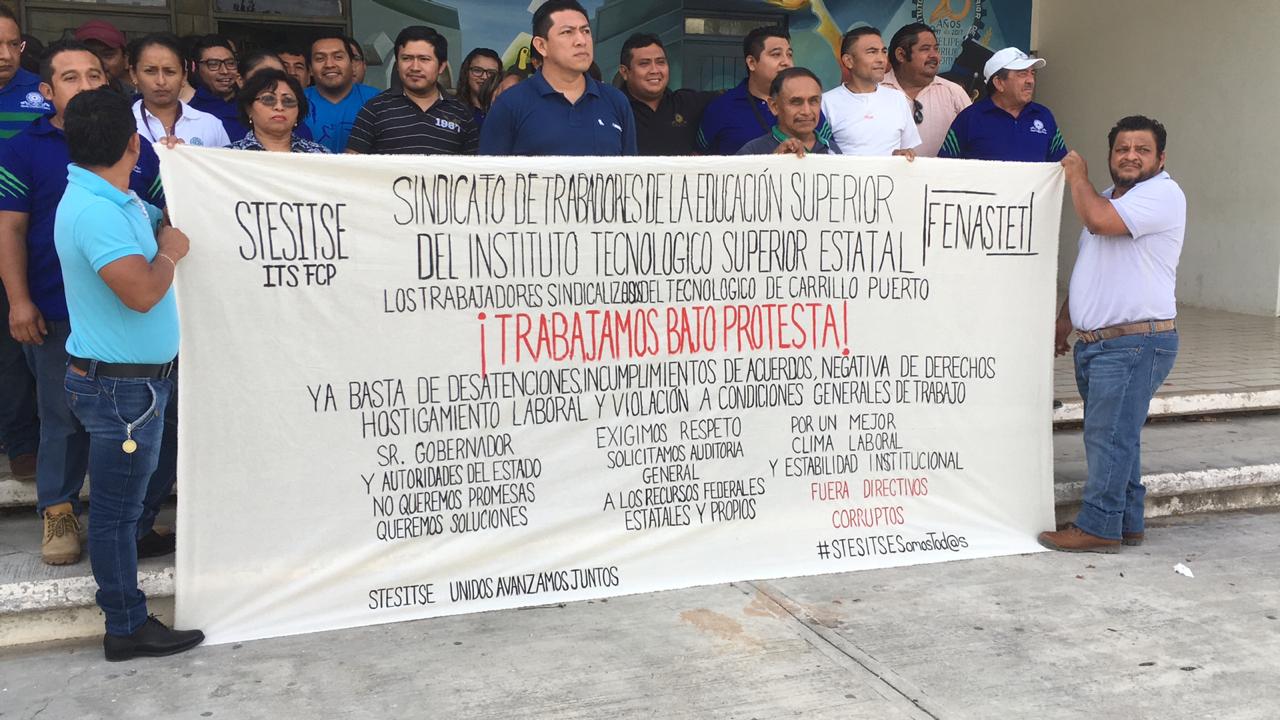 AÑOS
FELIPE
STESITSE
ITS FCP
SINDICATO DE TRABADORES DE LA EDUCACIÓN SUPERIOR
DEL INSTITUTO TECNOLOGICO SUPERIOR ESTATAL
FENASTETI
LOS TRABAJADORES SINDICALIZADOS DEL TECNOLOGICO DE CARRILLO PUERTO
¡TRABAJAMOS BAJO PROTESTA!
YA BASTA DE DESATENCIONES, INCUMPLIMIENTOS DE ACUERDOS, NEGATIVA DE DERECHOS
HOSTIGAMIENTO LABORAL Y VIOLACIÓN A CONDICIONES GENERALES DE TRABAJO
SR. GOBERNADOR
Y AUTORIDADES DEL ESTADO
NO QUEREMOS PROMESAS
QUEREMOS SOLUCIONES
EXIGIMOS RESPETO
SOLICITAMOS AUDITORIA
GENERAL
A LOS RECURSOS FEDERALES
ESTATALES Y PROPIOS
POR UN MEJOR
CLIMA LABORAL
Y ESTABILIDAD INSTITUCIONAL
FUERA DIRECTIVOS
CORRUPTOS
#STESITSESomosTod@s
STESITSE UNIDOS AVANZAMOS JUNTOS